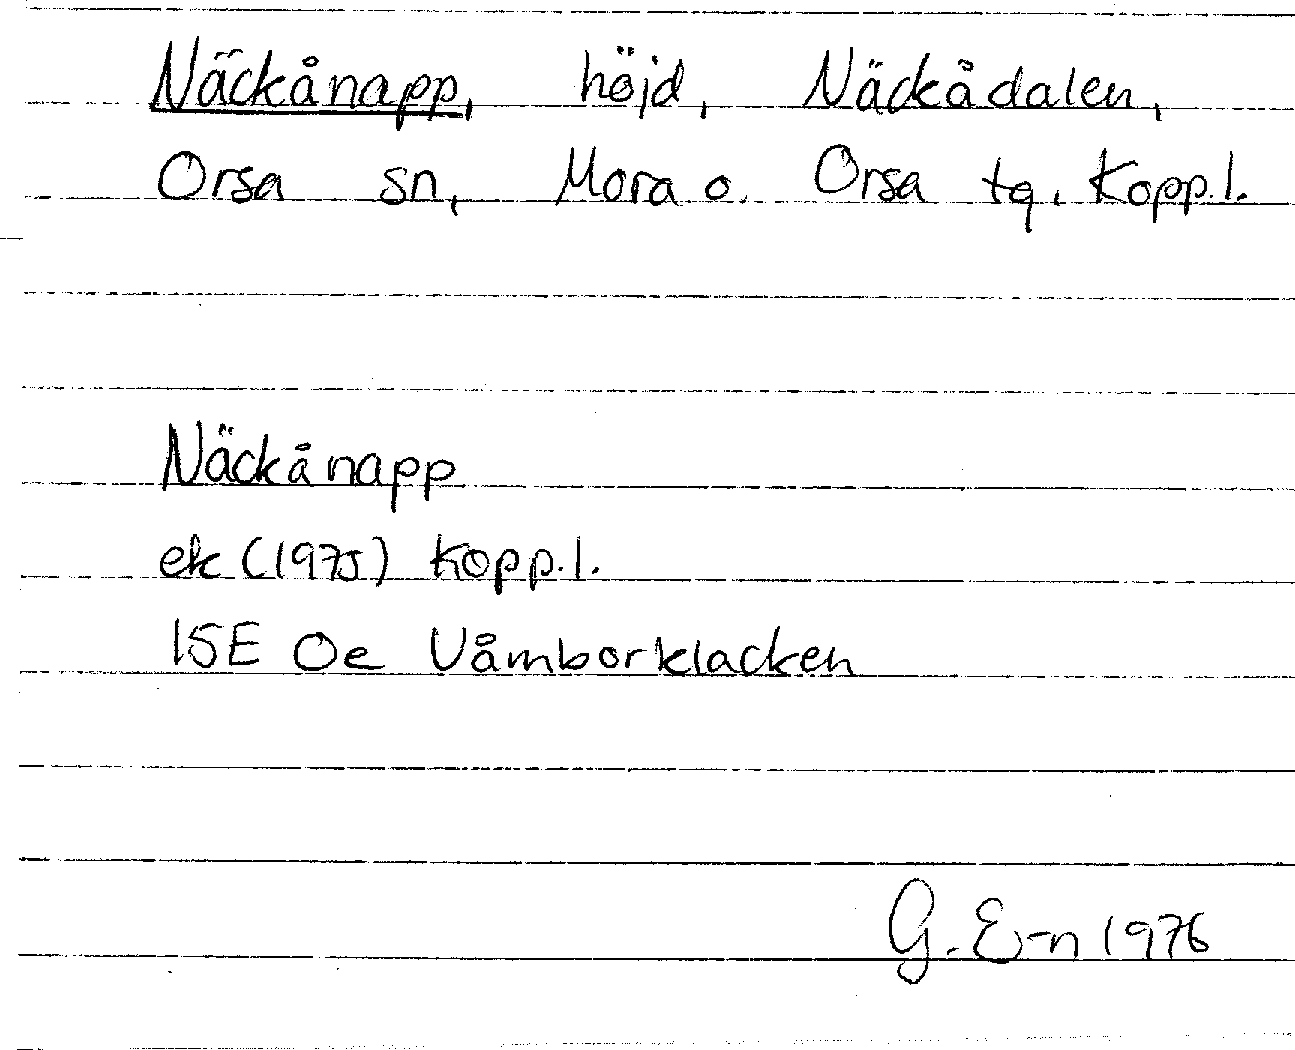 Näckånapp, höjd, Näckådalen,
Orsa sn, Mora o. Orsa tg. Kopp.l.
Näckånapp
ek (1975) Kopp.l.
15E Oe Våmborklacken
G. E-n 1976